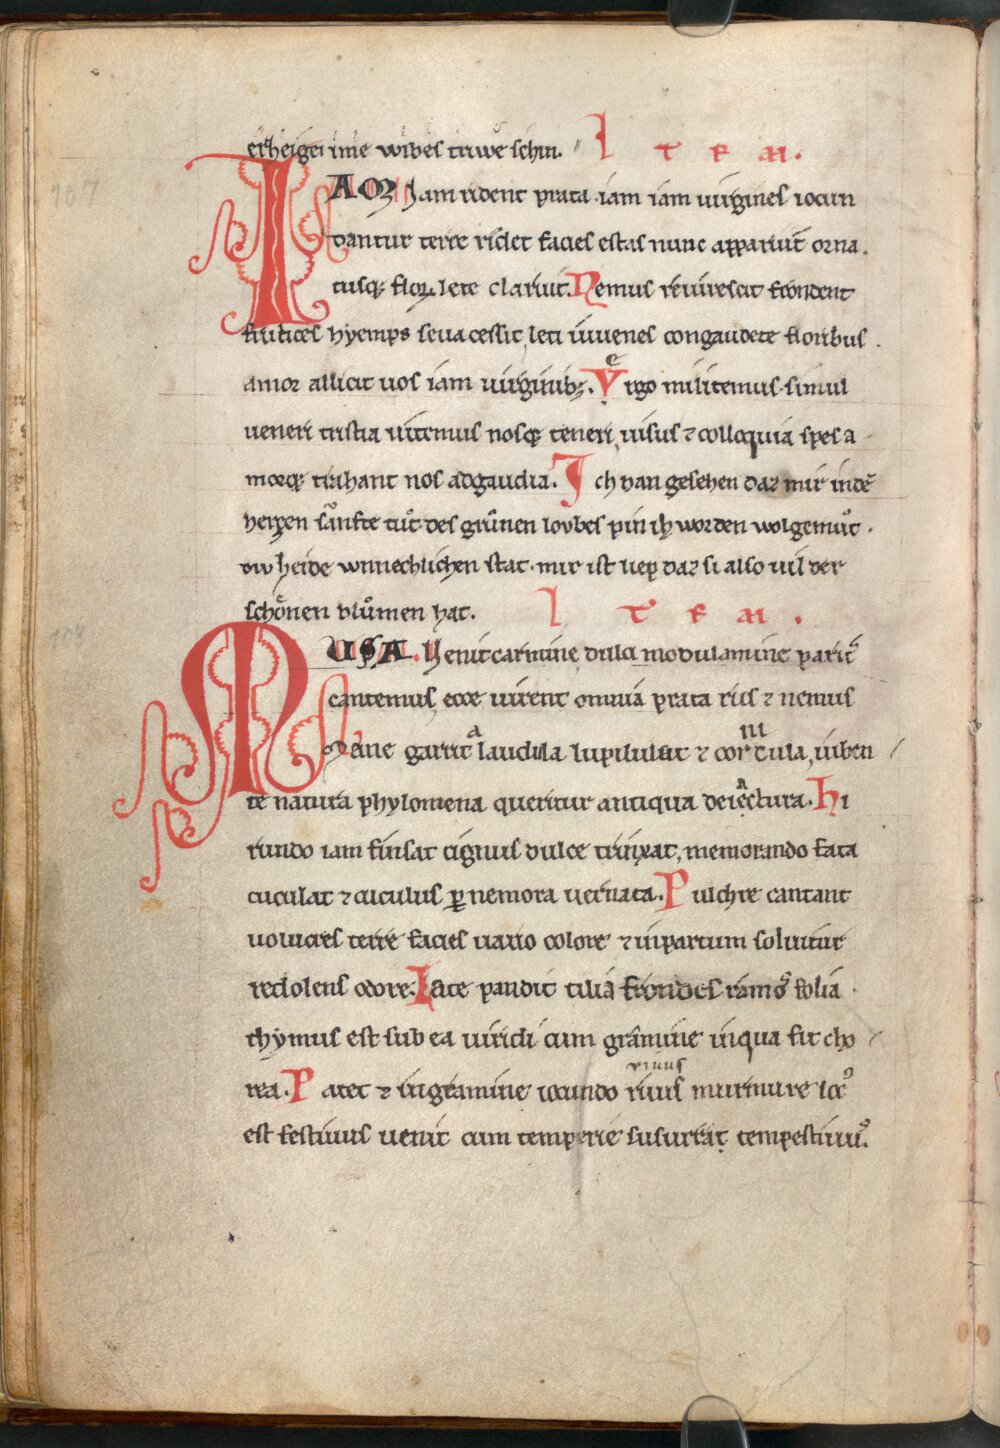 erzheigei ime wibes truwe schin. I T E M.
IAM Iam rident prata iam iam uirgines iocun
dantur terre ridet facies estas nunc apparuit orna
tusq; florꝝ lete claruit. Nemus reuirescit frondent
frutices hyemps seua cessit, leti iuuenes congaudete floribus
amor allicit uos iam uirginibꝫ. Virgo militemus simul
ueneri tristia uitemus nosq; teneri, uisus ⁊ colloquia spes a
morq; trahant nos adgaudia. Ich han gesehen daz mir inde
herzen sanfte tut des grunen loubes pin ih worden wolgemut.
diu heide wnnechlichen stat. mir ist liep daz si also uil der
schonen blumen hat. I T E M.
MUSA. Uenit carmine, dulci modulamine pariter
cantemus, ecce uirent omnia prata rus ⁊ nemus
Mane garrit laudula lupilulat ⁊ cornicula, iuben
te natura phylomena queritur antiqua deiectura. Hi
rundo iam finsat cignus dulce trinxat, memorando fata
cuculat ⁊ cuculus ꝑ nemora uernata. Pulchre cantant
uolucres terre facies uario colore ⁊ inpartum soluitur
redolens odore. Late pandit tilia frondes ramos folia
thymus est sub ea uiridi cum gramine inqua fit cho
rea. Patet ⁊ ingramine iocundo riuus murmure loc᾽
riuus
est festiuus uenit cum temperie susurrat tempestiuus.
107
108